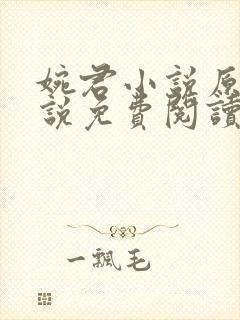 婉君小说原
說免費閱讀
一飄毛